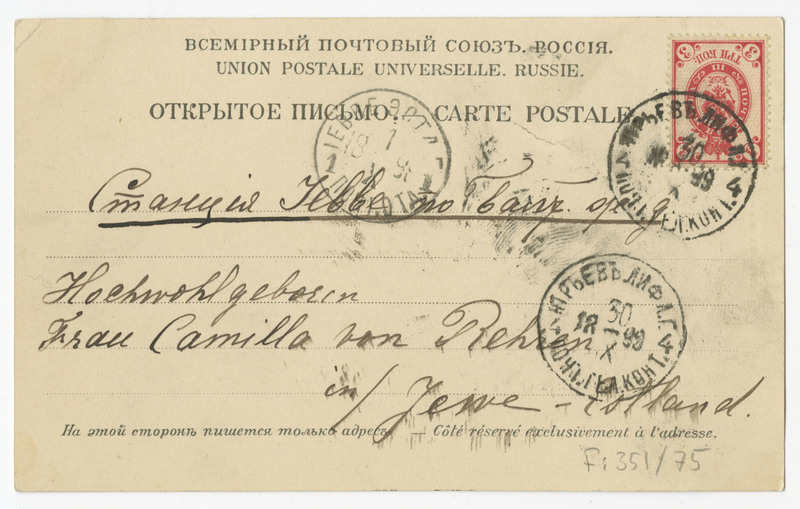 ВСЕМІРНЫЙ ПОЧТОВЫЙ СОЮЗЪ. РОССІЯ.
UNION POSTALE UNIVERSELLE. RUSSIE.
ОТКРЫТОЕ ПИСЬМО. CARTE POSTALE
ТРИ КОП
3 3
ІЕВВЕ ЭСТЛ. Г.
18 1
ЮРЬЕВЪ ЛИФЛ. Г.
30
X 99
4
Станція Іевве по Балт.
Hochwohlgeboren
Frau Camilla von
in Jewe – Estland.
ЮРЬЕВЪ ЛИФЛ. Г.
30
18 X 99
4
ПОЧТ. ТЕЛ. КОНТ.
На этой сторонѣ пишется только адресъ. Côté réservé exclusivement à l'adresse.
F: 351/75